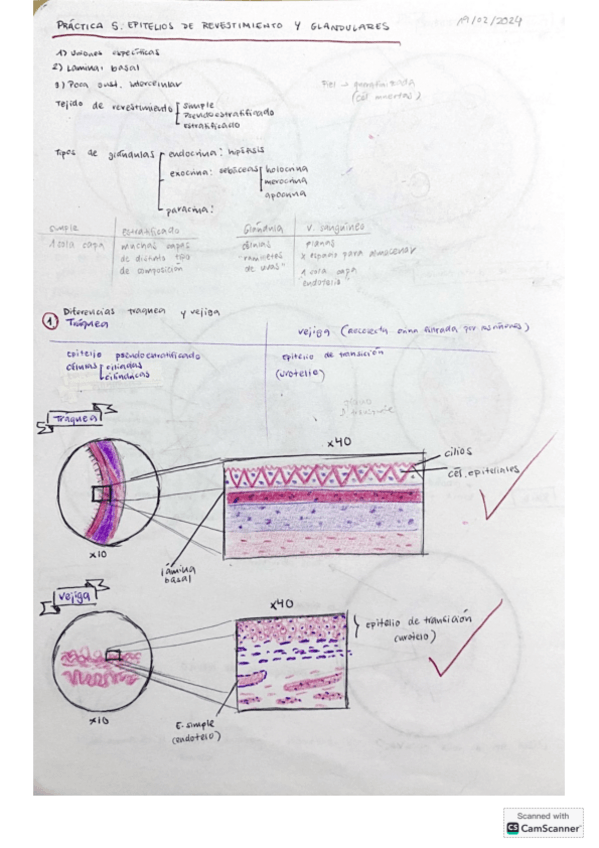 PRÁCTICA 5: EPITELIOS DE REVESTIMIENTO Y GLANDULARES
19/02/2024
1) Uniones específicas
2) Lámina basal
3) Poca sust. intercelular
Piel → queratinizada
(cél muertas)
Tejido de revestimiento simple
Pseudoestratificado
estratificado
Tipos de glándulas endocrina: hipófisis
exocrina: sebáceas holocrina
merocrina
apocrina
paracrina:
simple
estratificado
Glándula
V. sanguíneo
1 sola capa
muchas capas
de distinto tipo
de composición
células
"ramilletes
de uvas"
planas
x espacio para almacenar
1 sola capa
"endotelio"
1 Diferencias tráquea y vejiga
Tráquea
vejiga (Recolecta orina filtrada por riñones)
epitelio pseudoestratificado
células ciliadas
cilíndricas
epitelio de transición
(urotelio)
Tráquea
x40
cilios
cél. epiteliales
x10
lámina
basal
Vejiga
x40
epitelio de transición
(urotelo)
x10
E. simple
(endotelo)
Scanned with
CS CamScanner